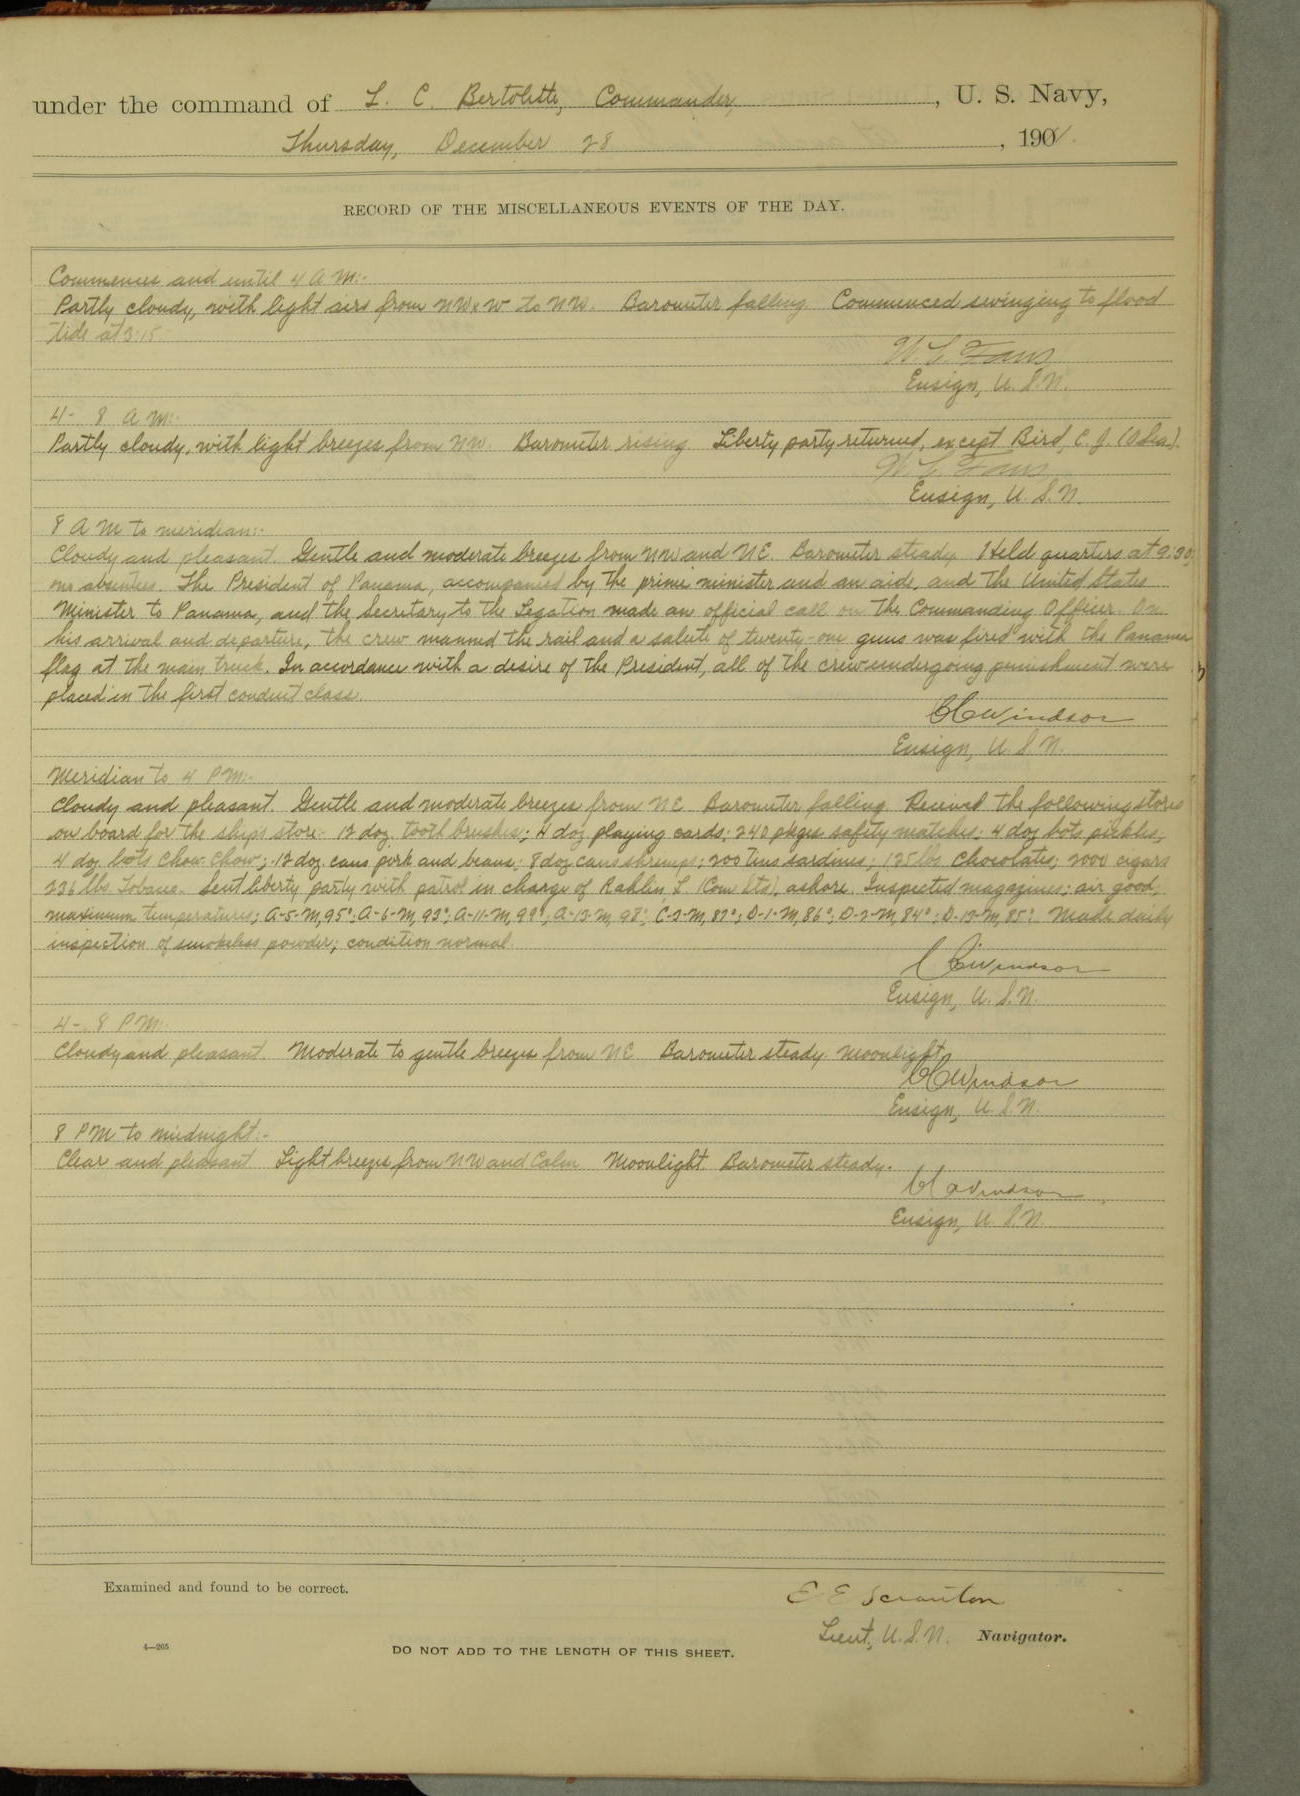 under the command of L. C. Bertolette, Commander, , U. S. Navy,
Thursday, December 28 , 190
RECORD OF THE MISCELLANEOUS EVENTS OF THE DAY.
Commences and until 4 A M:-
Partly cloudy, with light airs from NW x W to NW. Barometer falling. Commenced swinging to flood
tide at 3:15.
Ensign, U. S. N.
4- 8 A M:-
Partly cloudy, with light breezes from NW. Barometer rising. Liberty party returned, except Bird, C. J. (O Sea).
Ensign, U. S. N.
8 A M to meridian:-
Cloudy and pleasant. Gentle and moderate breezes from NW and NE. Barometer steady. Held quarters at 9:30,
no absentees. The President of Panama, accompanied by the prime minister and an aide, and the United States
Minister to Panama, and the Secretary to the Legation made an official call on the Commanding Officer. On
his arrival and departure, the crew manned the rail and a salute of twenty-one guns was fired with the Panama
flag at the main truck. In accordance with a desire of the President, all of the crew undergoing punishment were
placed in the first conduct class.
C C Windsor
Ensign, U. S. N.
Meridian to 4 P M:-
Cloudy and pleasant. Gentle and moderate breezes from NE. Barometer falling. Received the following stores
on board for the ships store:- 12 doz. tooth brushes; 4 doz playing cards; 240 pkges safety matches; 4 doz bots pickles;
4 doz bots Chow-Chow; 12 doz cans pork and beans; 8 doz cans shrimps; 200 tins sardines; 125 lbs Chocolates; 2000 cigars
236 lbs Tobacco. Sent liberty party with patrol in charge of Rahlin, L (Com Std), ashore. Inspected magazines; air good,
maximum temperatures; A-5-M, 95°; A-6-M, 93°; A-11-M, 99°; A-13-M, 98°; C-2-M, 87°; D-1-M, 86°; D-2-M, 84°; D-13-M, 85°. Made daily
inspection of smokeless powder; condition normal.
C C Windsor
Ensign, U. S. N.
4-8 P M:-
Cloudy and pleasant. Moderate to gentle breezes from NE. Barometer steady. Moonlight.
C C Windsor
Ensign, U. S. N.
8 P M to midnight:-
Clear and pleasant. Light breezes from NW and Calm. Moonlight. Barometer steady.
C C Windsor
Ensign, U. S. N.
Examined and found to be correct.
E E Scranton
Lieut, U. S. N. Navigator.
4—205
DO NOT ADD TO THE LENGTH OF THIS SHEET.